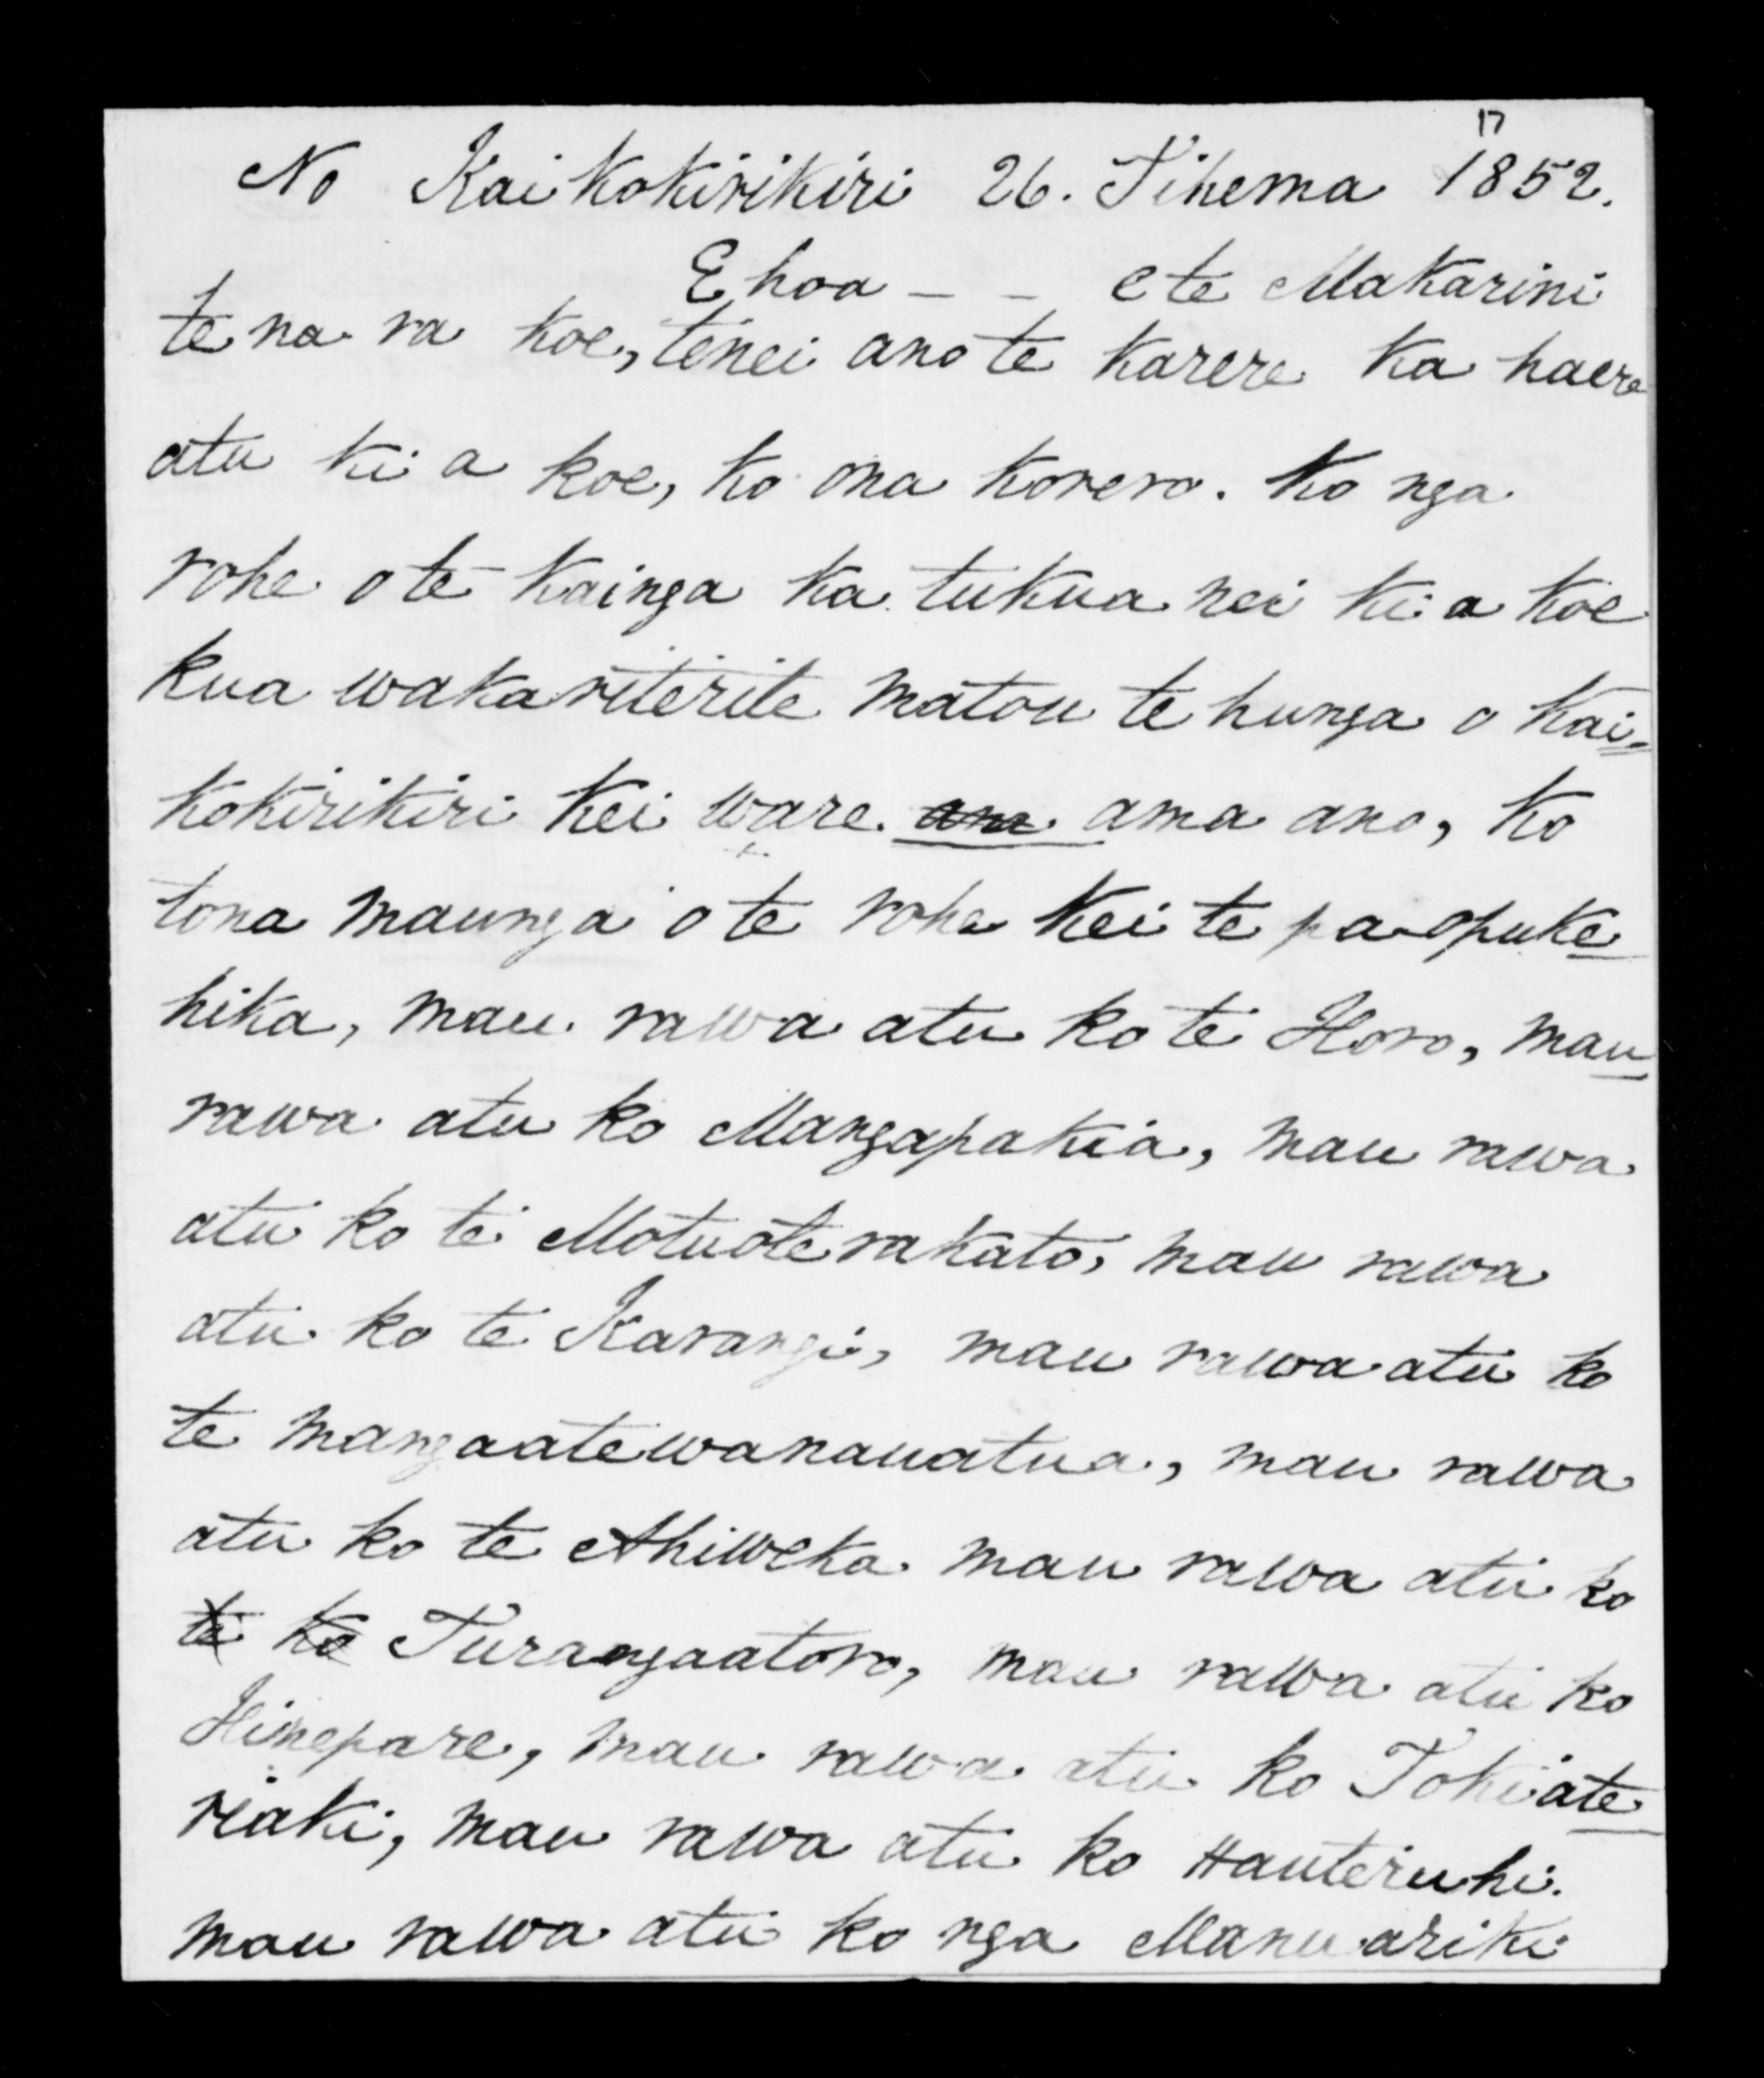 17
No Kaikokirikiri 26. Tihema 1852.
E hoa - - e te Makarini
te na ra koe, tenei ano te karere ka haere
atu ki a koe, ko ona korero. Ko nga
rohe o te kainga ka tukua nei ki a koe
kua wakariterite matou te hunga o Kai=
kokirikiri kei ware ama ano, ko
tona maunga o te rohe kei te pa opuke
hika, mau rawa atu ko te Horo, mau
rawa atu ko Mangapakia, mau rawa
atu ko te Motuoterakato, mau rawa
atu ko te Karangi, mau rawa atu ko
te mangaatewanauatua, mau rawa
atu ko te Ahiweka mau rawa atu ko
te ko Turangaatoro, mau rawa atu ko
Hinepare, mau rawa atu ko Tokiate
reaki, mau rawa atu ko Hauteruhi.
mau rawa atu ko nga Manuariki